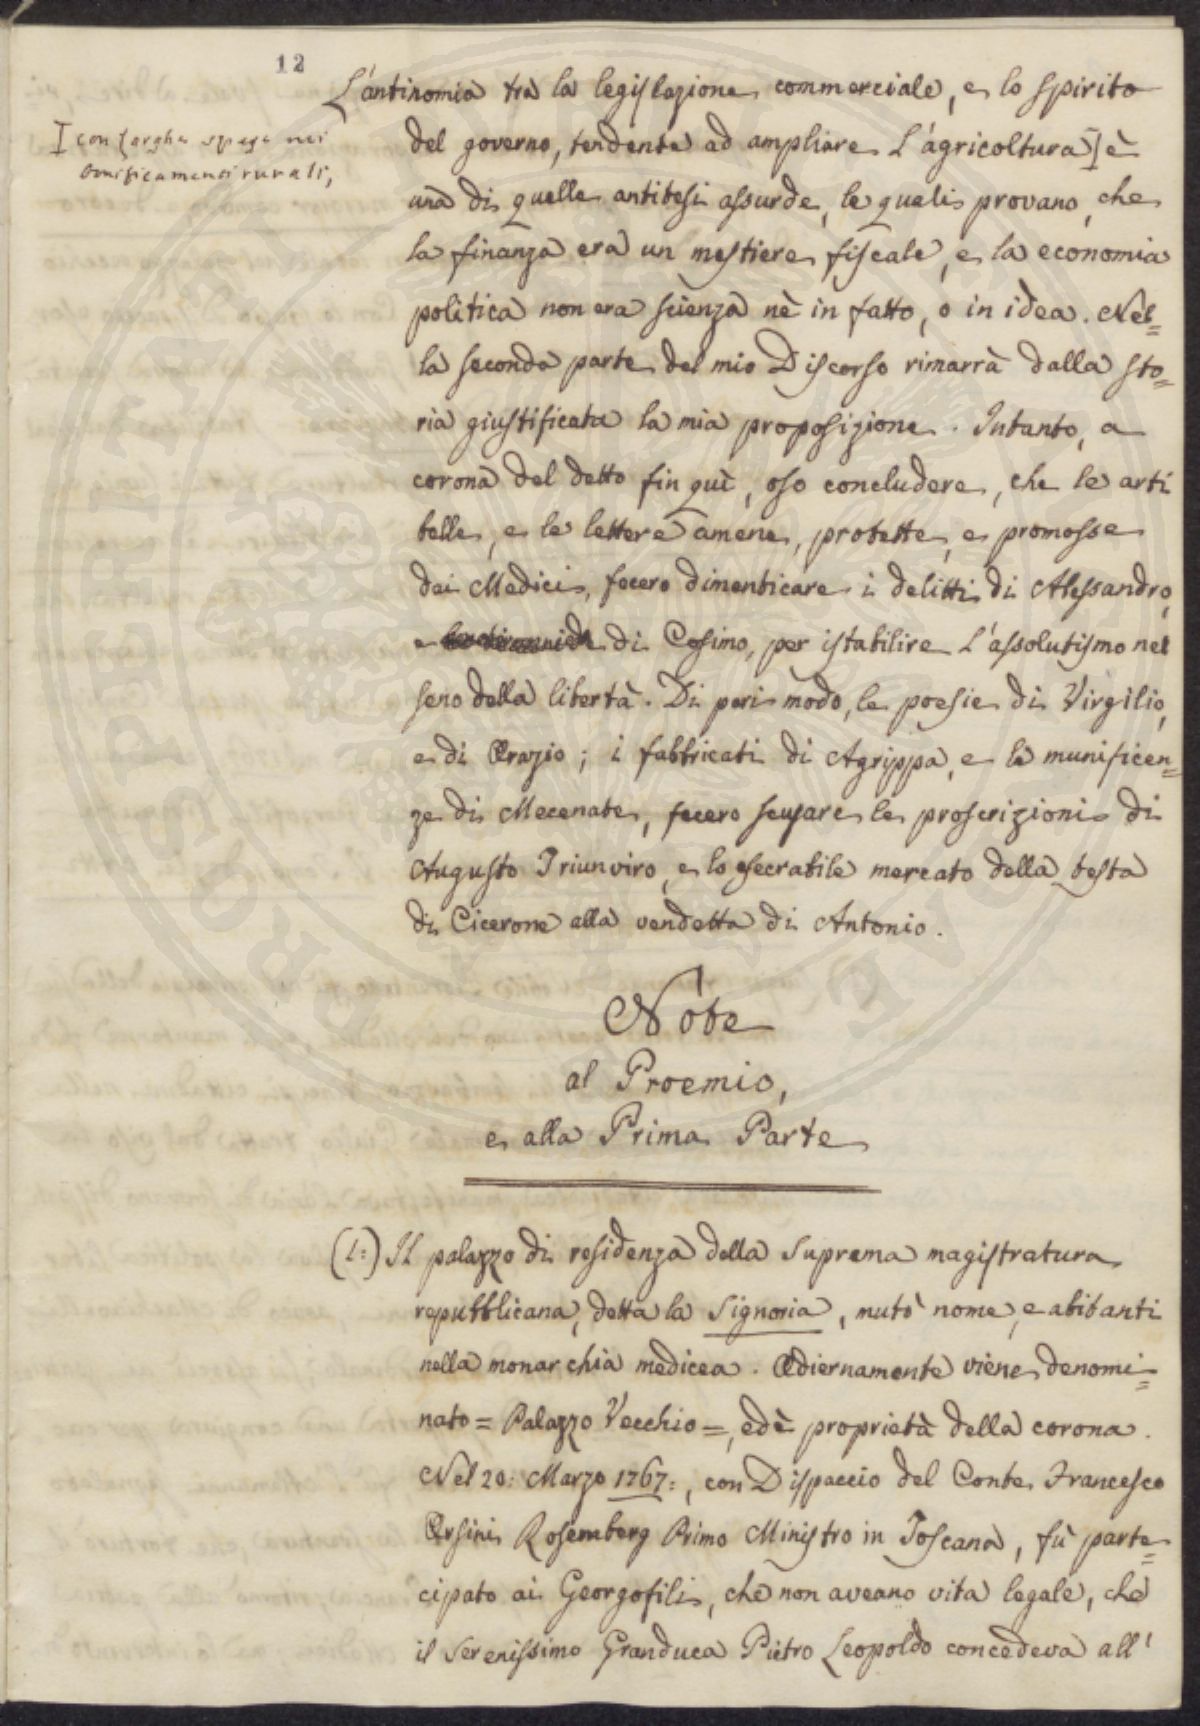 12
L'antinomia tra la legislazione commerciale, e lo spirito
I con larghe spese nei
bonificamenti rurali,
del governo, tendente ad ampliare l'agricoltura] è
una di quelle antitesi assurde, le quali provano, che
la finanza era un mestiere fiscale, e la economia
politica non era scienza nè in fatto, o in idea. Nel=
la seconda parte del mio Discorso rimarrà dalla sto=
ria giustificata la mia proposizione. Intanto, a
corona del detto fin quì, oso concludere, che le arti
belle, e le lettere amene, protette, e promosse
dai Medici, fecero dimenticare i delitti di Alessandro,
e di Cosimo, per istabilire l'assolutismo nel
seno della libertà. Di pari modo, le poesie di Virgilio,
e di Orazio; i fabbricati di Agrippa, e le munificen=
ze di Mecenate, fecero scusare le proscrizioni di
Augusto Triunviro, e lo esecrabile mercato della testa
di Cicerone alla vendetta di Antonio.
Note
al Proemio,
e alla Prima Parte
(1:) Il palazzo di residenza della Suprema magistratura
repubblicana, detta la Signoria, mutò nome, e abitanti
nella monarchia medicea. Odiernamente viene denomi=
nato = Palazzo Vecchio =, ed è proprietà della corona.
Nel 20: Marzo 1767:, con Dispaccio del Conte Francesco
Orsini Rosemberg Primo Ministro in Toscana, fù parte=
cipato ai Georgofili, che non aveano vita legale, che
il Serenissimo Granduca Pietro Leopoldo concedeva all'
PROSPERITATI PUBLICAE